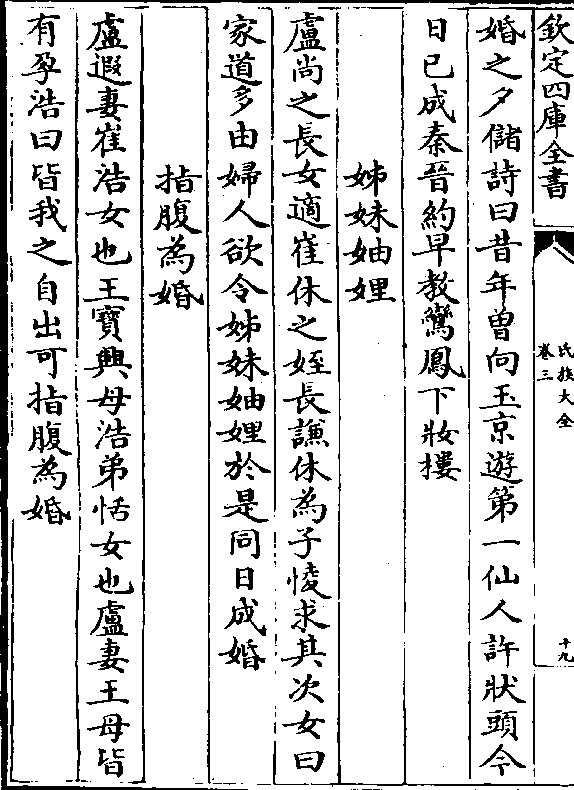 欽定四庫全書
氏族大全
卷三
十九
婚之夕儲詩曰昔年曾向玉京遊第一仙人許狀頭今
日已成秦晉約早教鸞鳳下妝樓
姊妹妯娌
盧尚之長女適崔休之姪長謙休為子㥄求其次女曰
家道多由婦人欲令姊妹妯娌於是同日成婚
指腹為婚
盧遐妻崔浩女也王寶興母浩弟恬女也盧妻王母皆
有孕浩曰皆我之自出可指腹為婚